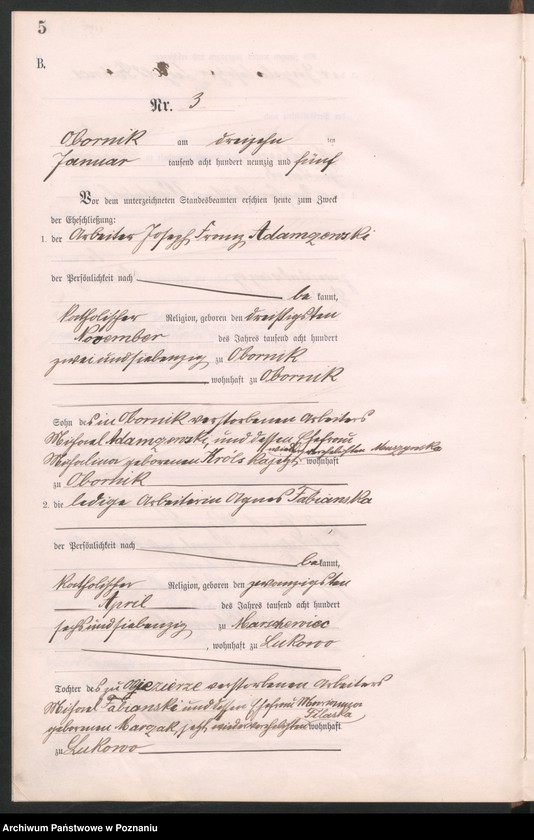 5
B.
Nr. 3
Obornik am dreizehn ten
Januar tausend acht hundert neunzig und fünf
Vor dem unterzeichneten Standesbeamten erschien heute zum Zweck
der Eheschließung:
1. der Arbeiter Joseph Franz Adamzewski
der Persönlichkeit nach
be kannt,
katholischer Religion, geboren den dreißigsten
November des Jahres tausend acht hundert
zwei und siebenzig zu Obornik
wohnhaft zu Obornik
Sohn des in Obornik verstorbenen Arbeiters
Adamzewski, und dessen Ehefrau
wieder verehelichten
geborenen jetzt wohnhaft
zu Obornik
2. die ledige Arbeiterin Agnes Fabianska
der Persönlichkeit nach
be kannt,
katholischer Religion, geboren den zwanzigsten
April des Jahres tausend acht hundert
sechsundsiebenzig zu
, wohnhaft zu Lukowo
Tochter des zu verstorbenen Arbeiters
Fabianski und dessen Ehefrau
geborenen jetzt wiederverehelichten wohnhaft
zu Lukowo
Archiwum Państwowe w Poznaniu